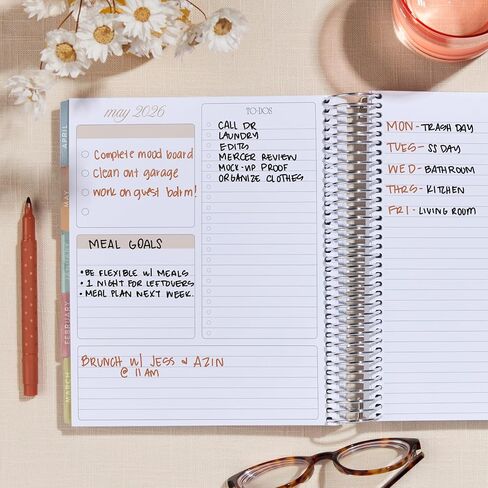 may 2026
Complete mood board
Clean out garage
work on guest bathrm!
MEAL GOALS
• BE FLEXIBLE W/ MEALS
• 1 NIGHT FOR LEFTOVERS
• MEAL PLAN NEXT WEEK.
BRUNCH W/ JESS & AZIN
@ 11 AM
TO-DOS
CALL DR
LAUNDRY
EDITS
MERCER REVIEW
MOCK-UP PROOF
ORGANIZE CLOTHES
MON - TRASH DAY
TUES - SS DAY
WED - BATHROOM
THRS - KITCHEN
FRI - LIVING ROOM
APRIL
MAY
FEBRUARY
MARCH